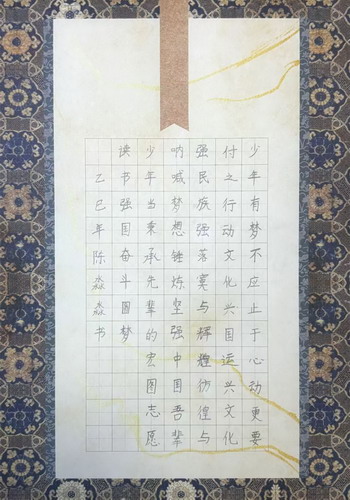 少年有梦不应止于心动更要
付之行动文化兴国运兴文化
强民族强落寞与辉煌彷徨与
呐喊梦想锤炼坚强中国吾辈
少年当秉承先辈的宏图志愿
读书强国奋斗圆梦
乙巳年陈淼淼书